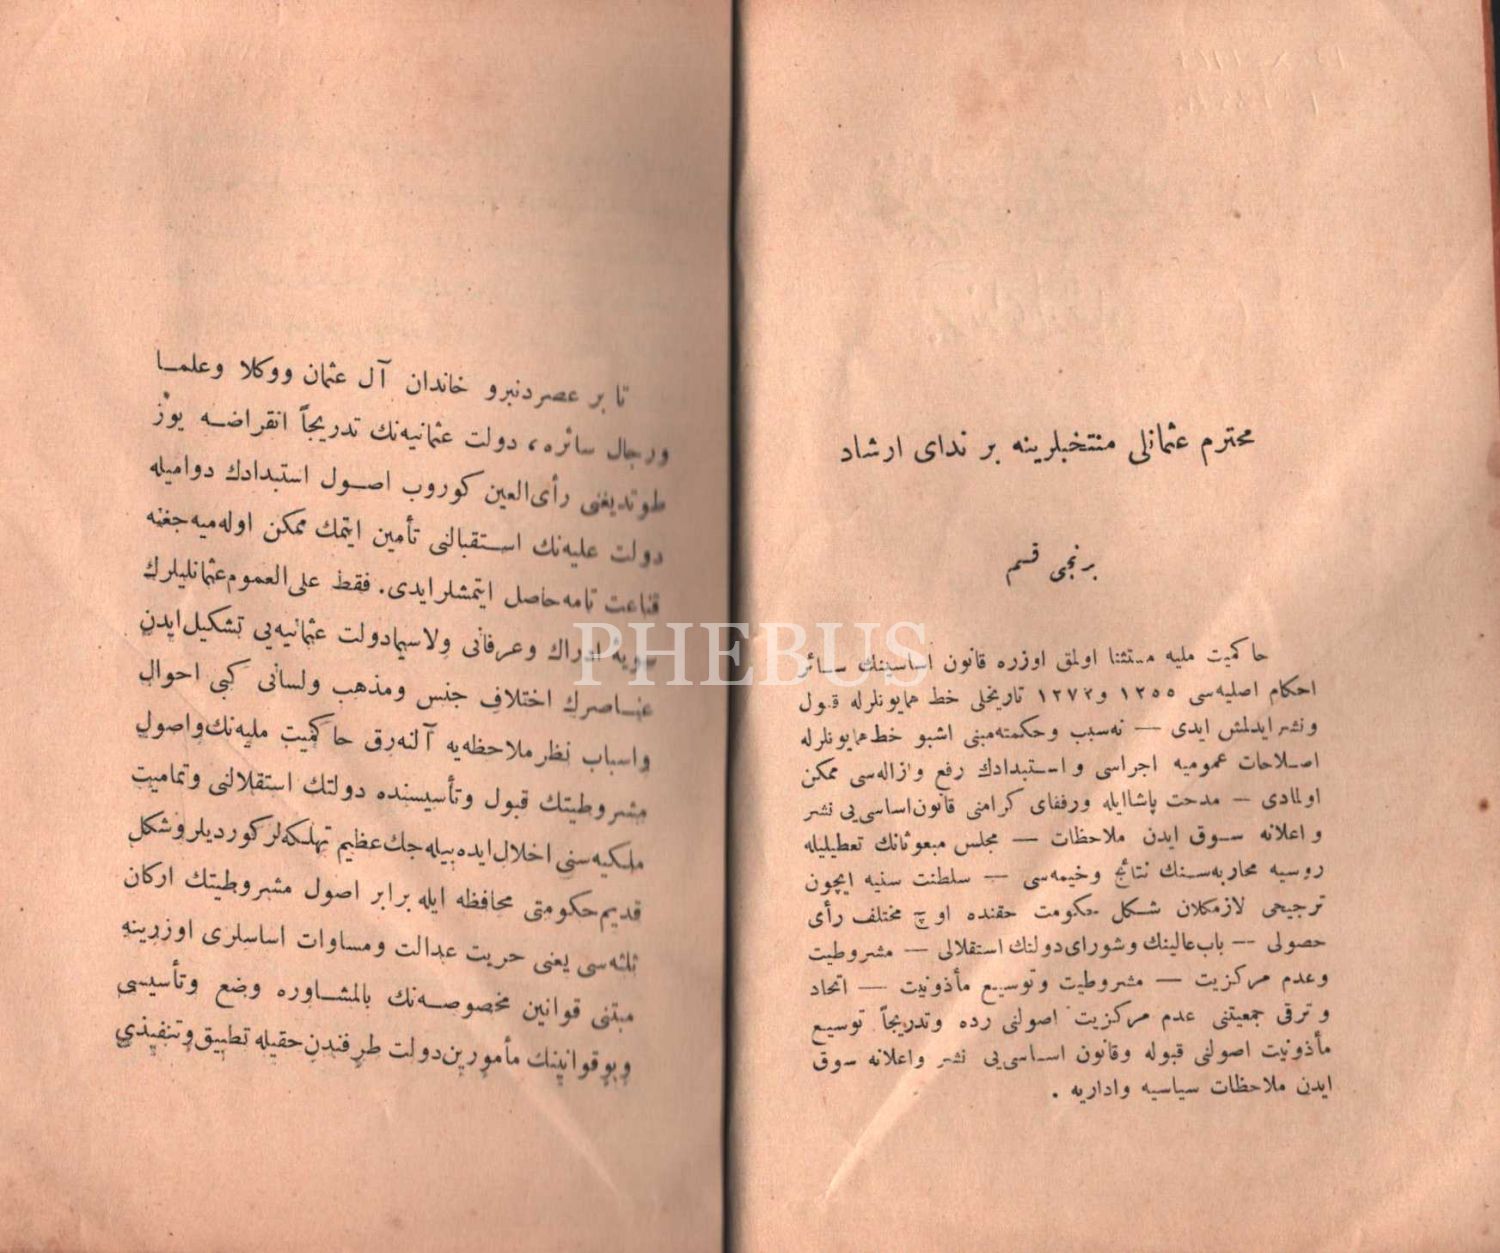 محترم عثمانلی منتخبلرینه بر ندای ارشاد
برنجی قسم
حاكمیت ملیه مستثنا اولمق اوزره قانون اساسینك سـائر
احكام اصلیه‌سی ١٢٥٥ و ١٢٧٢ تاریخلی خط همایونلرله قبول
ونشر ایدلمش ایدی — نه‌سبب وحكمته‌مبنی اشبو خط‌همایونلرله
اصلاحات عمومیه اجراسی واستبدادك رفع وازاله‌سی ممكن
اولمادی — مدحت پاشاایله ورفقای كرامنی قانون‌اساسی‌یی نشر
واعلانه سوق ایدن ملاحظات — مجلس مبعوثانك تعطیلیله
روسیه محاربه‌سنك نتائج وخیمه‌سی — سلطنت سنیه ایچون
ترجیحی لازمكلان شكل حكومت حقنده اوچ مختلف رأی
حصولی — باب‌عالینك وشورای‌دولتك استقلالی — مشروطیت
وعدم مركزیت — مشروطیت وتوسیع مأذونیت — اتحاد
وترقی جمعیتنی عدم مركزیت اصولنی رده وتدریجاً توسیع
مأذونیت اصولنی قبوله وقانون اساسی‌یی نشر واعلانه سوق
ایدن ملاحظات سیاسیه واداریه .
تا بر عصردنبرو خاندان آل عثمان ووكلا وعلمـا
ورجال سائره، دولت عثمانیه‌نك تدریجاً انقراضـه یوز
طوتدیغنی رأی‌العین كوروب اصـول استبدادك دوامیله
دولت علیه‌نك اسـتقبالنی تأمین ایتمك ممكن اوله‌میه‌جغنه
قناعت تامه‌حاصل ایتمشلرایدی. فقط علی‌العموم‌عثمانلیلرك
سویهٔ ادراك وعرفانی ولاسیمادولت عثمانیه‌یی تشكیل‌ایدن
عنـاصرك اختلاف جنس ومذهب ولسانی كبی احوال
واسباب نظرملاحظه‌یه آلنه‌رق حاكمیت ملیه‌نك‌واصول
مشروطیتك قبول وتأسیسنده دولتك استقلالنی وتمامیت
ملكیه‌سنی اخلال‌ایده‌بیله‌جك‌عظیم تهلكه‌لركوردیلروشكل
قدیم‌حكومتی محافظه ایله برابر اصول مشروطیتك اركان
ثلثه‌سی یعنی حریت عدالت ومساوات اساسلری اوزرینه
مبتنی قوانین مخصوصـه‌نك بالمشـاوره وضع وتأسیسی
وبوقوانینك مأمورین‌دولت طرفندن‌حقیله تطبیق‌وتنفیذی
PHEBUS